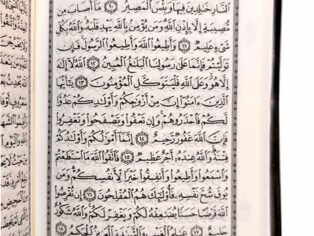 ٱلنَّارِ خَٰلِدِينَ فِيهَا وَبِئْسَ ٱلْمَصِيرُ ١٠ مَآ أَصَابَ مِن
مُّصِيبَةٍ إِلَّا بِإِذْنِ ٱللَّهِ وَمَن يُؤْمِنۢ بِٱللَّهِ يَهْدِ قَلْبَهُۥ وَٱللَّهُ بِكُلِّ
شَىْءٍ عَلِيمٌ ١١ وَأَطِيعُوا۟ ٱللَّهَ وَأَطِيعُوا۟ ٱلرَّسُولَ فَإِن
تَوَلَّيْتُمْ فَإِنَّمَا عَلَىٰ رَسُولِنَا ٱلْبَلَٰغُ ٱلْمُبِينُ ١٢ ٱللَّهُ لَآ إِلَٰهَ
إِلَّا هُوَ وَعَلَى ٱللَّهِ فَلْيَتَوَكَّلِ ٱلْمُؤْمِنُونَ ١٣ يَٰٓأَيُّهَا
ٱلَّذِينَ ءَامَنُوٓا۟ إِنَّ مِنْ أَزْوَٰجِكُمْ وَأَوْلَٰدِكُمْ عَدُوًّا
لَّكُمْ فَٱحْذَرُوهُمْ وَإِن تَعْفُوا۟ وَتَصْفَحُوا۟ وَتَغْفِرُوا۟
فَإِنَّ ٱللَّهَ غَفُورٌ رَّحِيمٌ ١٤ إِنَّمَآ أَمْوَٰلُكُمْ وَأَوْلَٰدُكُمْ
فِتْنَةٌ وَٱللَّهُ عِندَهُۥٓ أَجْرٌ عَظِيمٌ ١٥ فَٱتَّقُوا۟ ٱللَّهَ مَا ٱسْتَطَعْتُمْ
وَٱسْمَعُوا۟ وَأَطِيعُوا۟ وَأَنفِقُوا۟ خَيْرًا لِّأَنفُسِكُمْ وَمَن
يُوقَ شُحَّ نَفْسِهِۦ فَأُو۟لَٰٓئِكَ هُمُ ٱلْمُفْلِحُونَ ١٦ إِن تُقْرِضُوا۟
ٱللَّهَ قَرْضًا حَسَنًا يُضَٰعِفْهُ لَكُمْ وَيَغْفِرْ لَكُمْ وَٱللَّهُ شَكُورٌ
حَلِيمٌ ١٧ عَٰلِمُ ٱلْغَيْبِ وَٱلشَّهَٰدَةِ ٱلْعَزِيزُ ٱلْحَكِيمُ ١٨